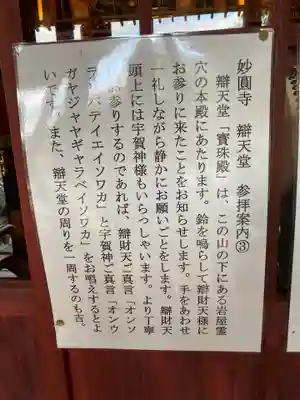 妙圓寺　辯天堂　参拝案内③
辯天堂「寳珠殿」は、この山の下にある岩屋霊
穴の本殿にあたります。鈴を鳴らして辯財天様に
お参りに来たことをお知らせします。手をあわせ
一礼しながら静かにお願いごとをします。辯財天
頭上には宇賀神様もいらっしゃいます。より丁寧
にお参りするのであれば、辯財天ご真言「オンソ
ラ　　テイエイソワカ」と宇賀神ご真言「オンウ
ガヤジャヤギャラベイソワカ」をお唱えするとよ
いです。また、辯天堂の周りを一周するのも吉。